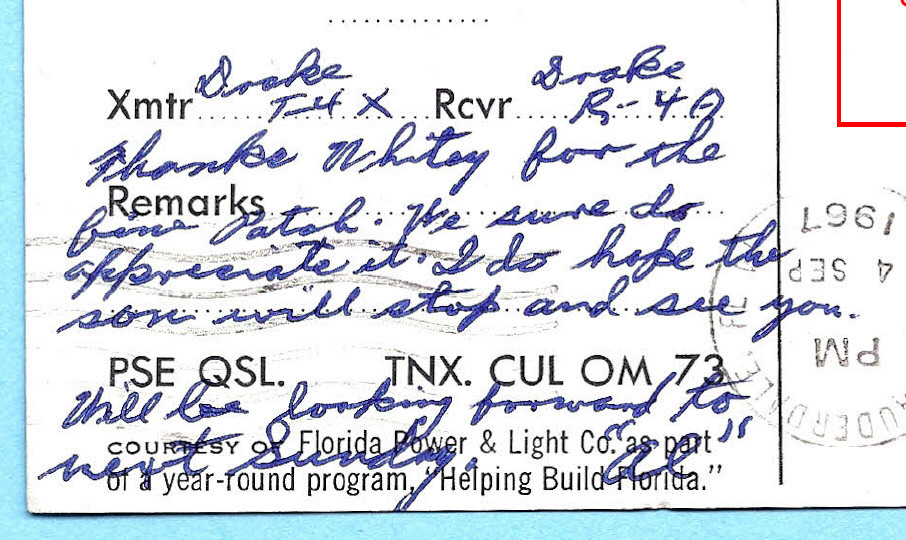 Drake Drake
Xmtr T-4 X Rcvr R-4 A
Thanks Whitey for the
Remarks
fine Patch. We sure do
appreciate it. I do hope the
son will stop and see you.
PSE QSL. TNX. CUL OM 73
Will be looking forward to
COURTESY OF Florida Power & Light Co. as part
next Sunday. "Al"
of a year-round program, "Helping Build Florida."
LAUDERDALE
PM
4 SEP
1967